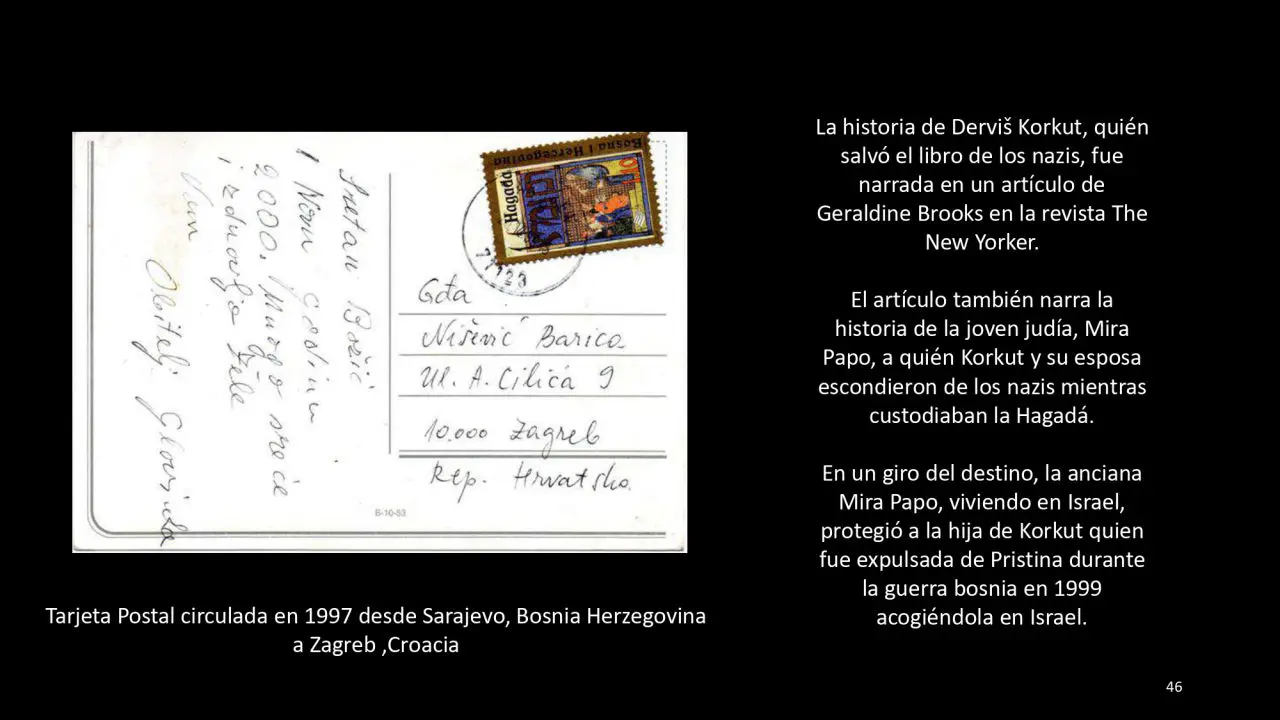 Sretan Božić
i Novu Godinu
2000. Mnogo sreće
i zdravlja žele
Vam
Obitelj
Bosna i Hercegovina
Hagada
Gđa
Nišević Barica
Ul. A. Cilića 9
10.000 Zagreb
Rep. Hrvatska.
B-10-53
Tarjeta Postal circulada en 1997 desde Sarajevo, Bosnia Herzegovina
a Zagreb ,Croacia
La historia de Derviš Korkut, quién
salvó el libro de los nazis, fue
narrada en un artículo de
Geraldine Brooks en la revista The
New Yorker.
El artículo también narra la
historia de la joven judía, Mira
Papo, a quién Korkut y su esposa
escondieron de los nazis mientras
custodiaban la Hagadá.
En un giro del destino, la anciana
Mira Papo, viviendo en Israel,
protegió a la hija de Korkut quien
fue expulsada de Pristina durante
la guerra bosnia en 1999
acogiéndola en Israel.
46